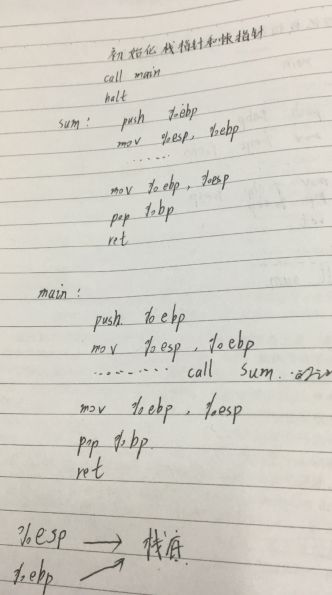 初始化栈指针和帧指针
call main
halt
sum: push %ebp
mov %esp, %ebp
......
mov %ebp, %esp
pop %bp
ret
main:
push. %ebp
mov %esp, %ebp
......... call sum.
mov %ebp, %esp
pop %bp.
ret
%esp → 栈底
%ebp